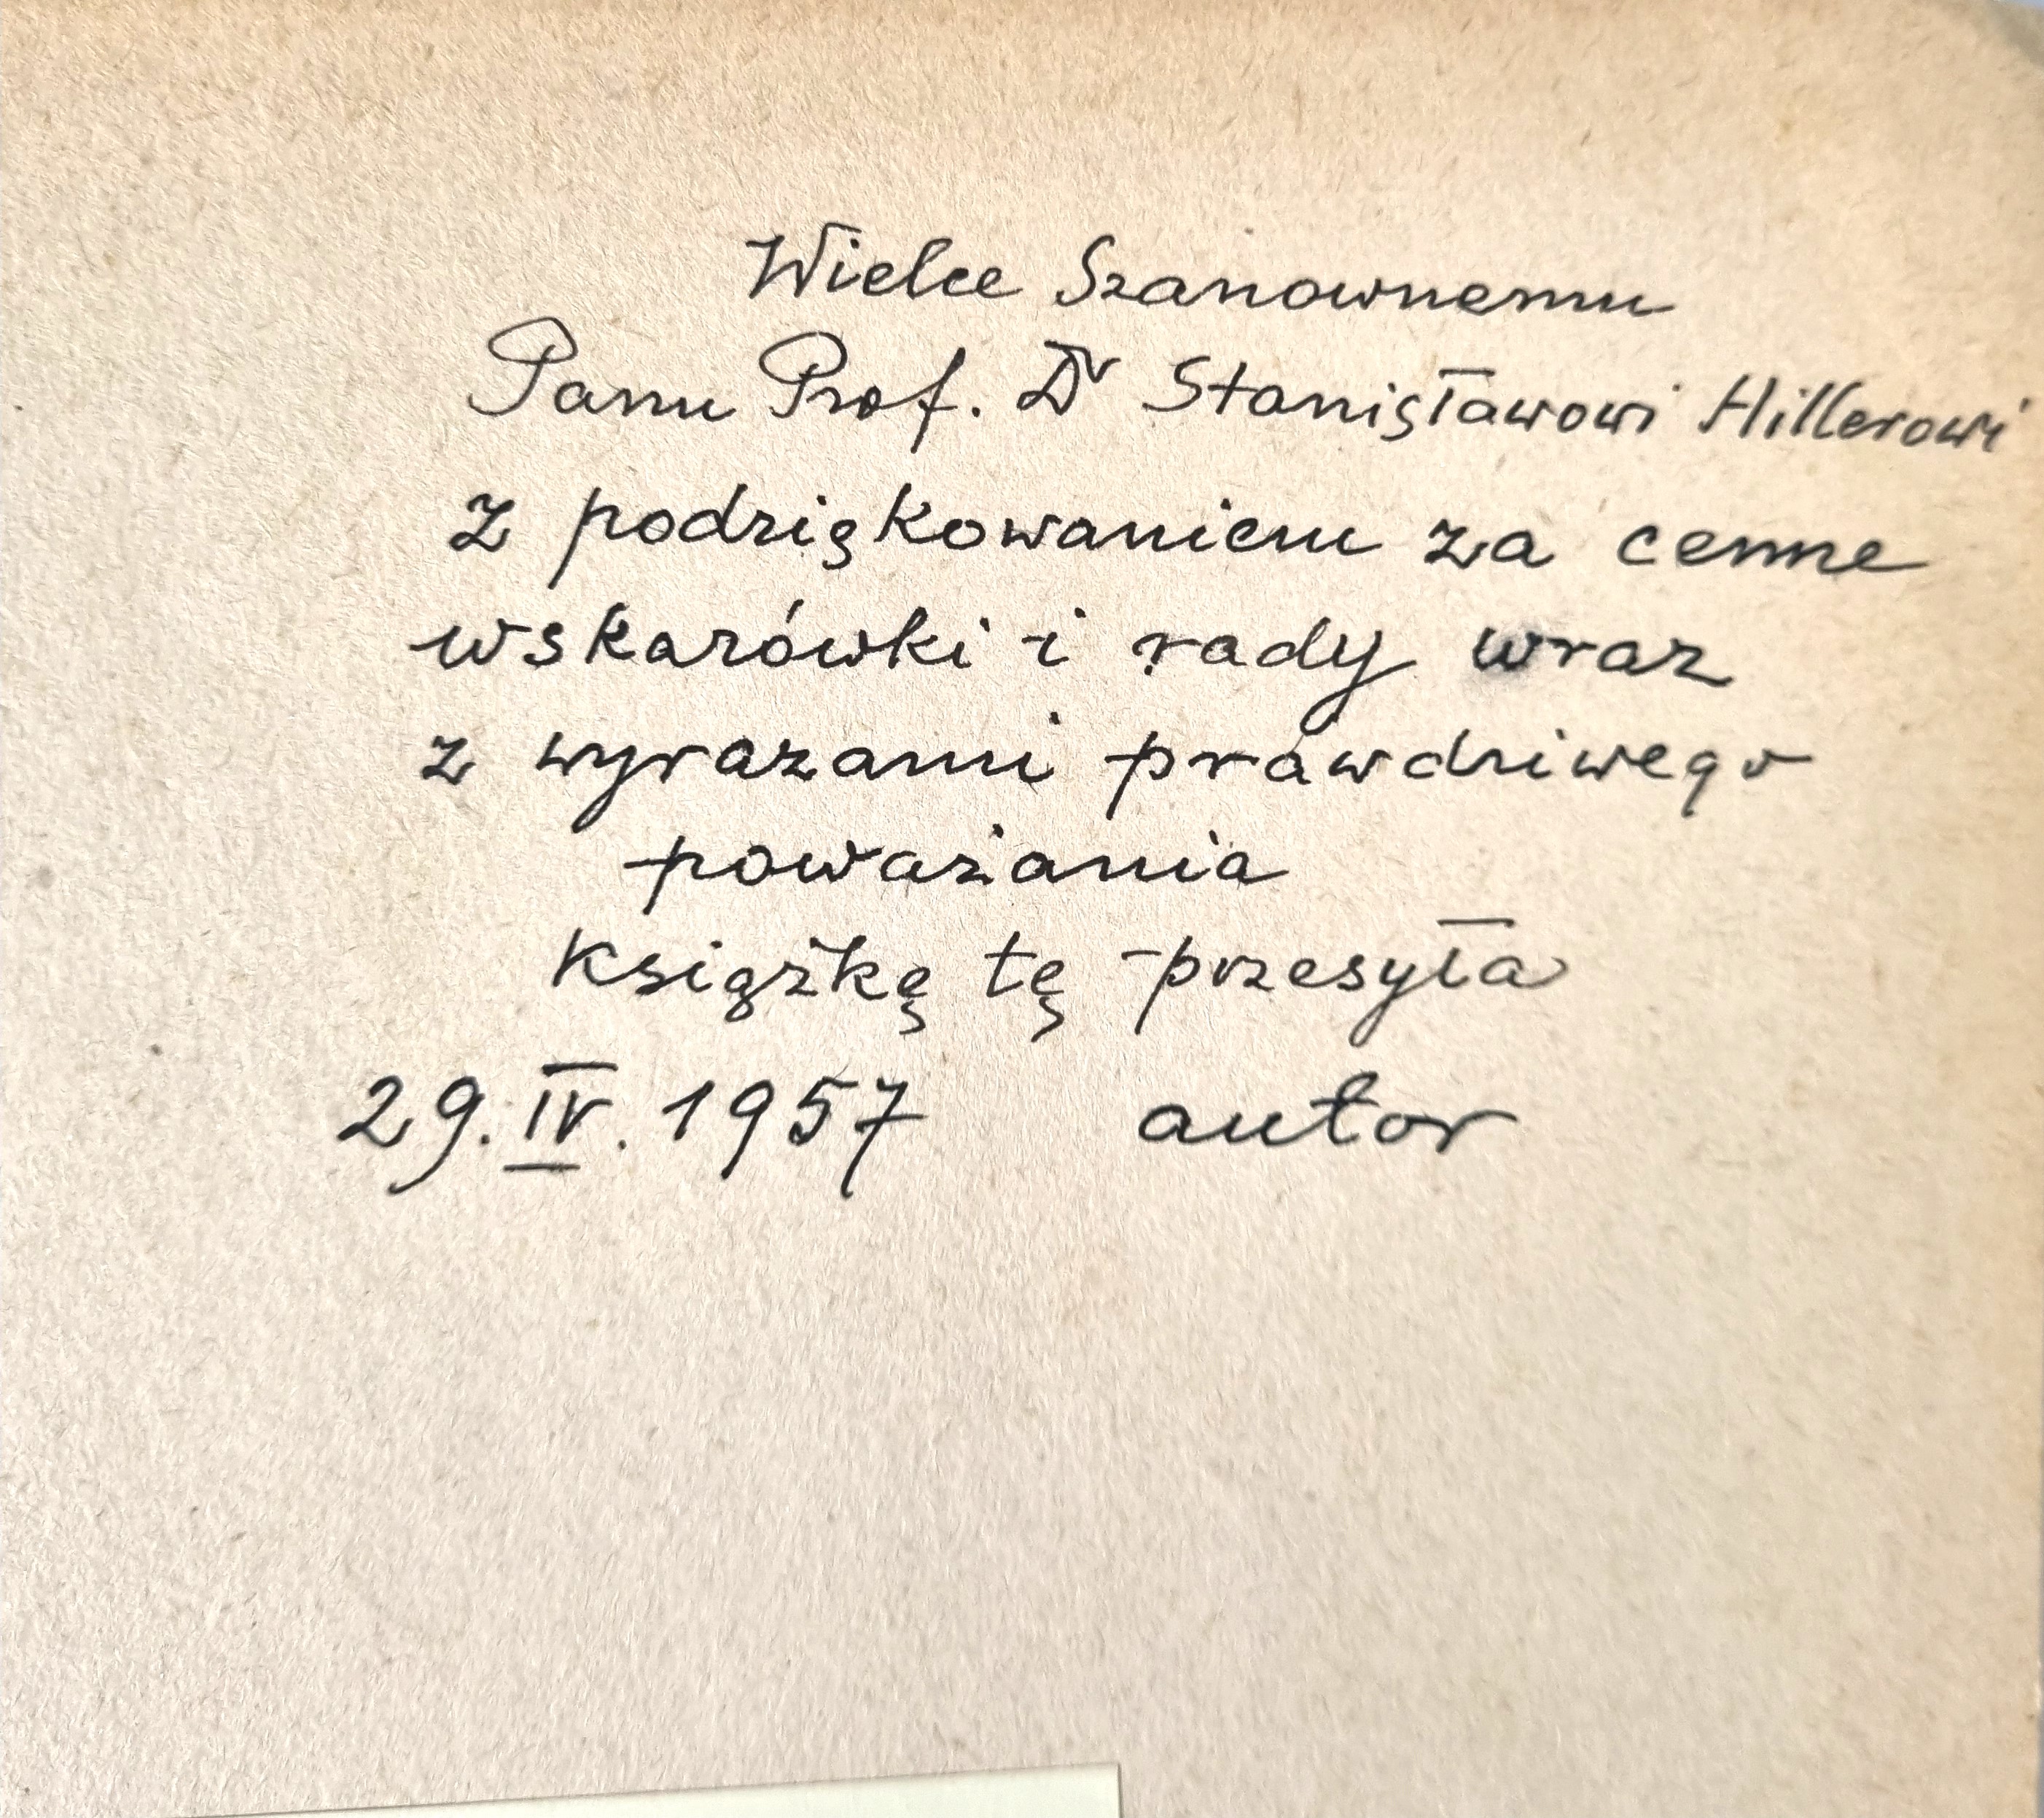 Wielce Szanownemu
Panu Prof. Dr Stanisławowi Hillerowi
z podziękowaniem za cenne
wskazówki i rady wraz
z wyrazami prawdziwego
poważania
książkę tę przesyła
29. IV. 1957 autor